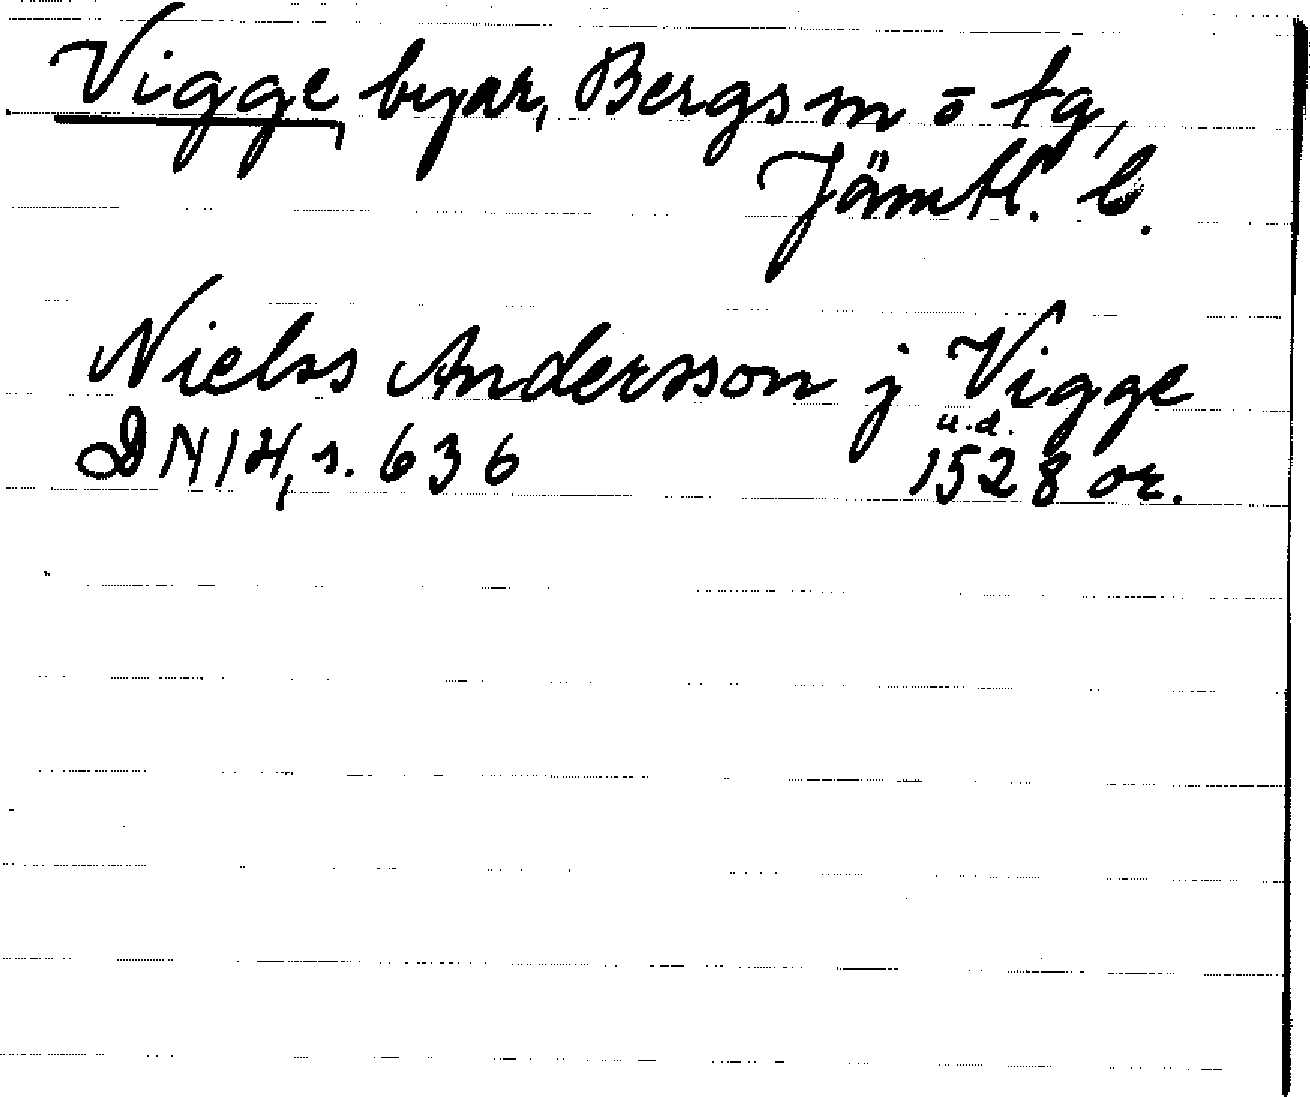 Vigge, byar, Bergs sn o tg,
Jämtl. l.
Nielss Andersson j Vigge
u.d.
DN 14, s. 636 1528 or.